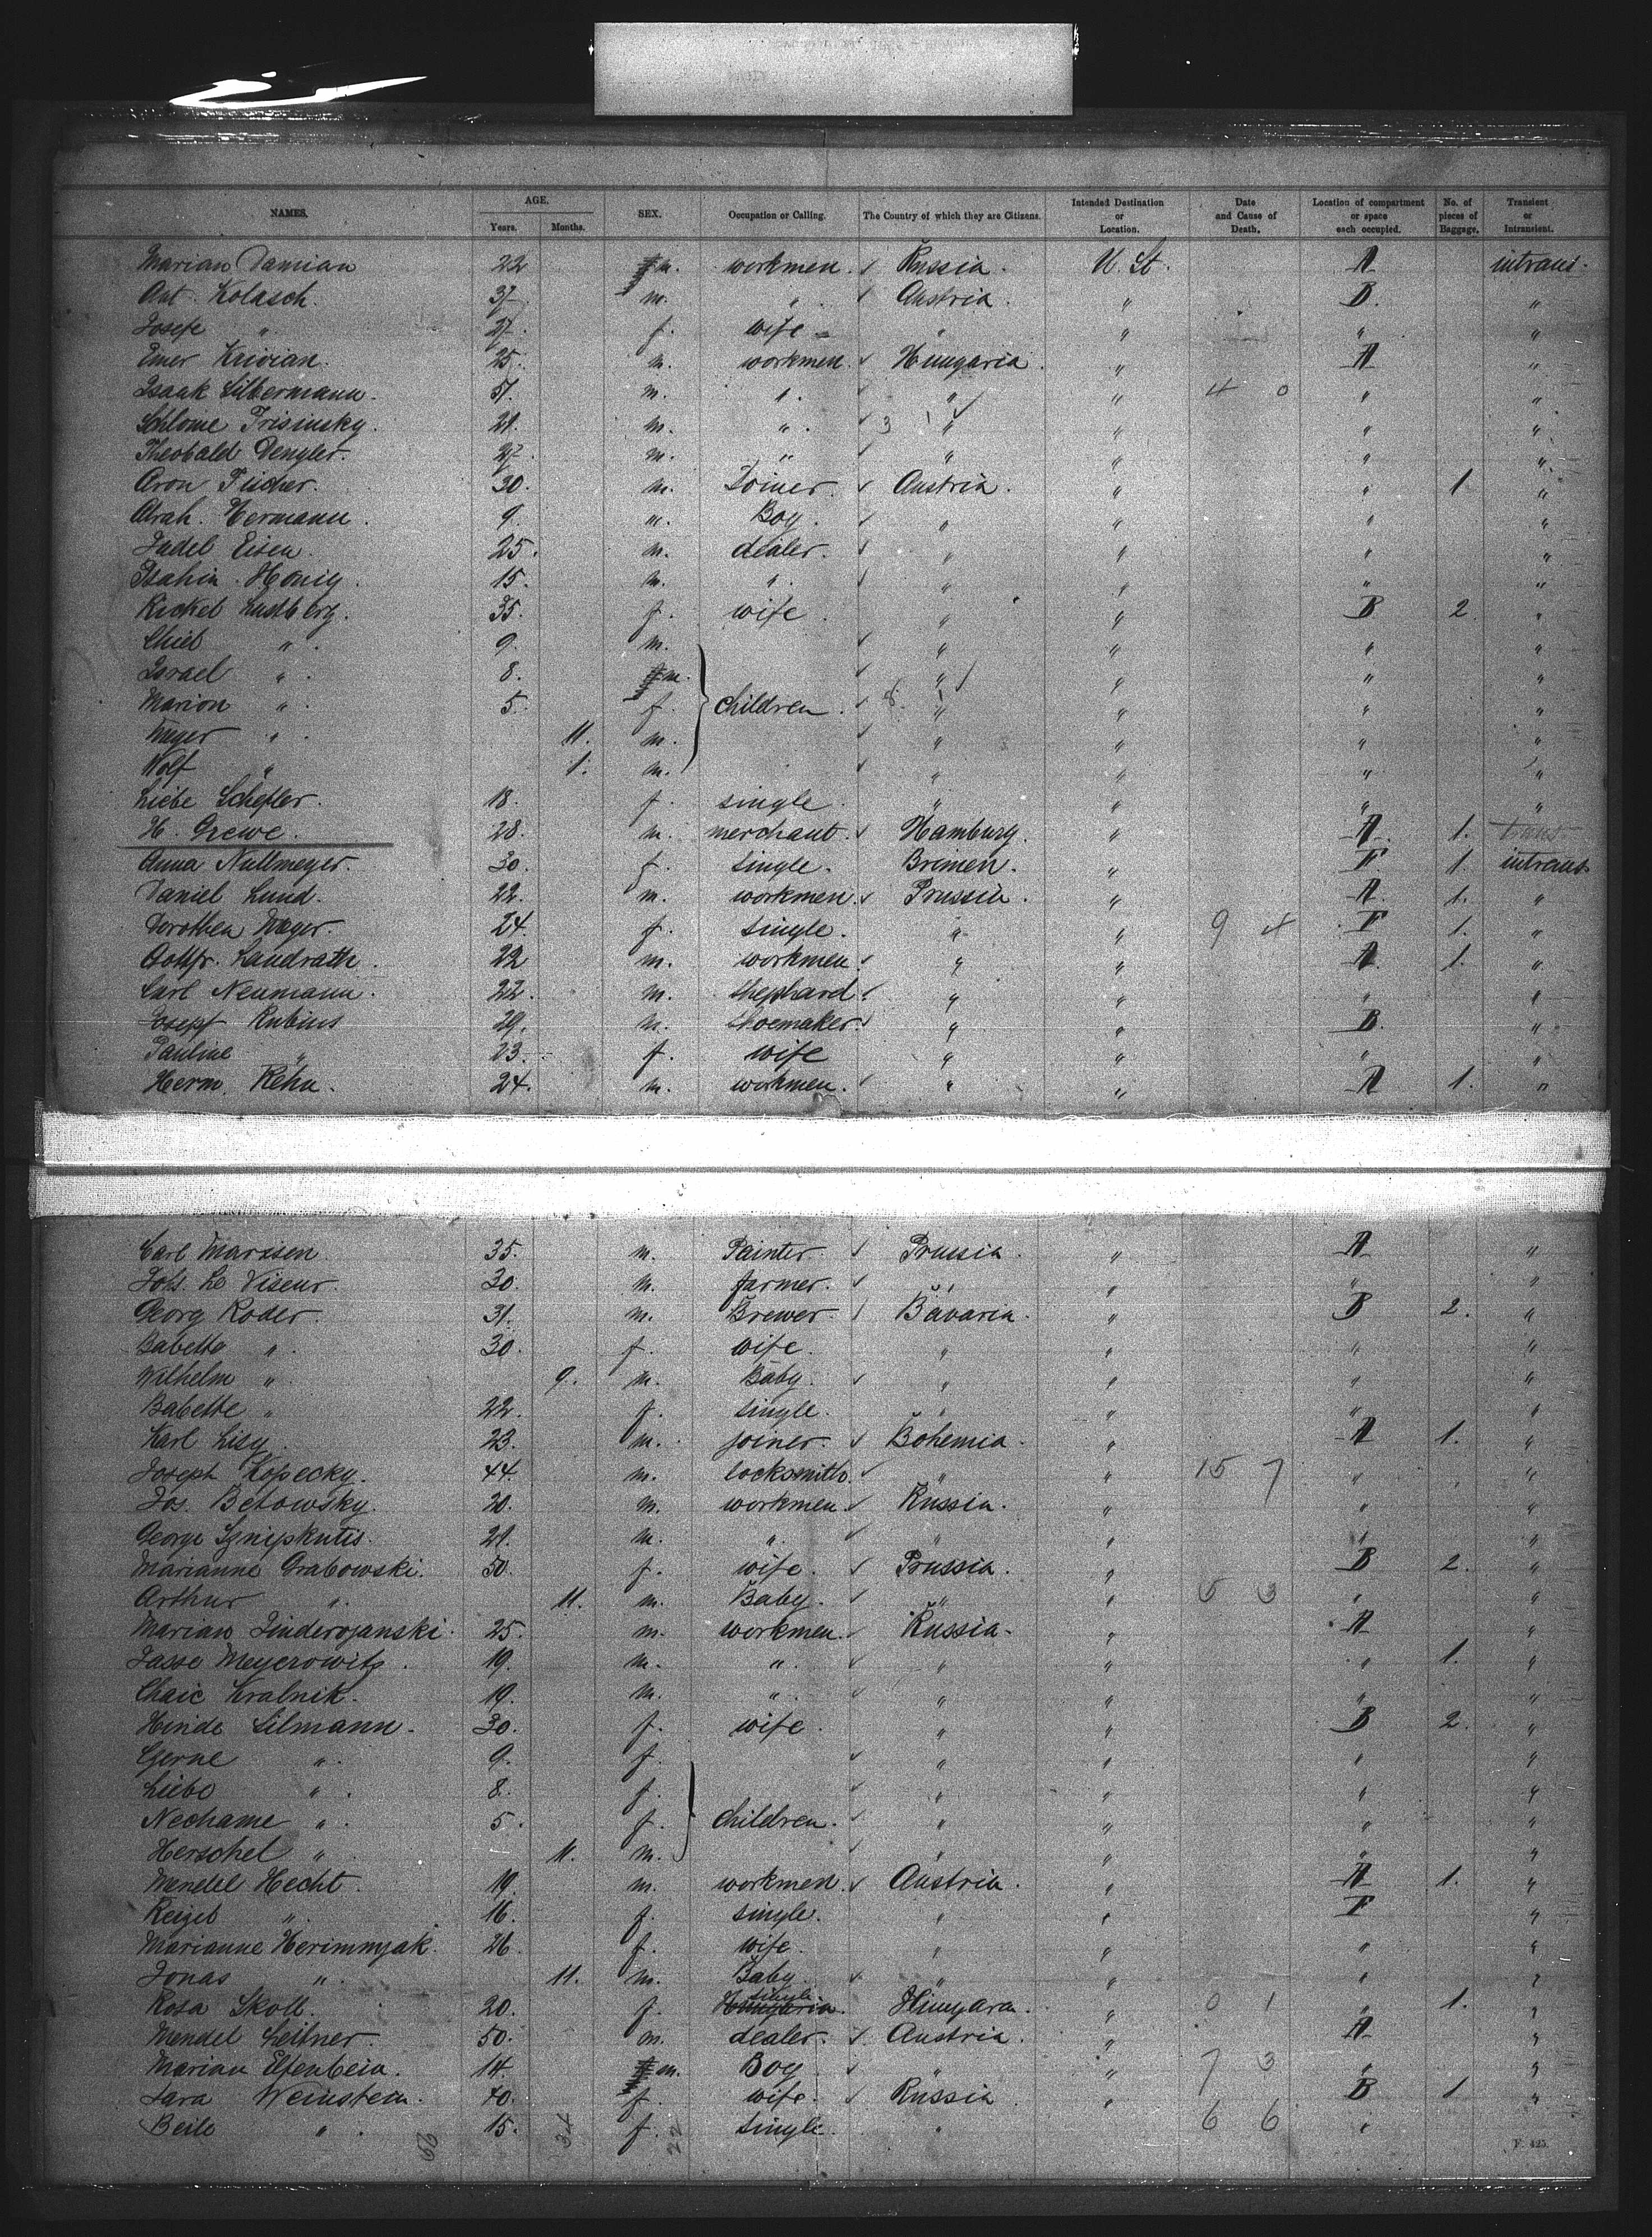 NAMES. AGE. Years. Months. SEX. Occupation or Calling. The Country of which they are Citizens. Intended Destination or Location. Date and Cause of Death. Location of compartment or space each occupied. No. of pieces of Baggage. Transient or Intransient.
Marian Damian 22 m. workmen. Russia. U. St. A intrans.
Ant. Kolasch. 37. m. " Austria. " B. "
Josefe " 27. f. wife " " " "
Emer Krivian. 25. m. workmen. Hungaria. " A "
Isaak Silbermann. 51. m. " " " 4 0 " "
Schlome Trisinsky. 21. m. " 3 " " " "
Theobald Dengler. 27. m. " " " " "
Aron Fischer. 30. m. Joiner. Austria. " " 1 "
Abrah. Hermann. 9. m. Boy. " " " "
Judel Eisen. 25. m. dealer. " " " "
Honig. 15. m. " " " " "
Rickel Lustberg. 35. f. wife " " B 2. "
Chiel " 9. m. " " " "
Israel " 8. m. " " " "
Marion " 5. f. children. " " " "
Meyer " 11. m. " " " "
Wolf " 1. m. " " " "
Liebe Schefler. 18. f. single. " " " "
H. Grewe. 28. m. merchant. Hamburg. " A 1. trans
Anna Nullmeyer. 30. f. single. Bremen. " F 1. intrans.
Daniel Lund. 22. m. workmen. Prussia. " A 1. "
Dorothea Wager. 24. f. single. " " 9 4 F 1. "
Gottfr. Landrath. 22 m. workmen. " " A 1. "
Carl Neumann. 22. m. shephard. " " " "
Josepf Rubins 29. m. shoemaker. " " B. "
Pauline " 23. f. wife " " " "
Herm. Rehn. 24. m. workmen. " " A 1. "
Carl Marxsen. 35. m. Painter. Prussia. " A "
Johs. Le Viseur. 30. m. farmer. " " " "
Georg Roder. 31. m. Brewer. Bavaria. " B 2. "
Babette " 30. f. wife. " " " "
Wilhelm " 9. m. Baby. " " " "
Babette " 22. f. single. " " " "
Karl Lisy. 23. m. joiner. Bohemia. " A 1. "
Joseph Kopecky. 44. m. locksmith. " " 15 7 " "
Jos. Betowsky. 20. m. workmen. Russia. " " "
George Sznipkutis. 21. m. " " " " "
Marianne Grabowski. 50. f. wife. Prussia. " B 2. "
Arthur " 11. m. Baby. " " 5 3 " "
Marian 25. m. workmen. Russia. " A "
Jasse Meyerowitz. 19. m. " " " " 1. "
Chaie Kralnik. 19. m. " " " " "
Hinde Silmann. 30. f. wife. " " B 2. "
Gerne " 9. f. " " " "
Liebe " 8. f. " " " "
Nechame " 5. f. children. " " " "
Herschel " 11. m. " " " "
Mendel Hecht. 19. m. workmen. Austria. " A 1. "
Reizel " 16. f. single. " " F "
Marianne Herimmyak. 26. f. wife. " " " "
Jonas " 11. m. Baby. " " " "
Rosa Skoll. 20. f. single Hungaria. Hungara. " 0 1 " 1. "
Mendel Leitner. 50. m. dealer. Austria. " A "
Marian Elfenbein. 14. m. Boy. " " 7 3 " "
Sara Weinstein. 40. f. wife. Russia. " B 1 "
Beile " 15. f. single. " 6 6 "
66 34 22 F. 425.